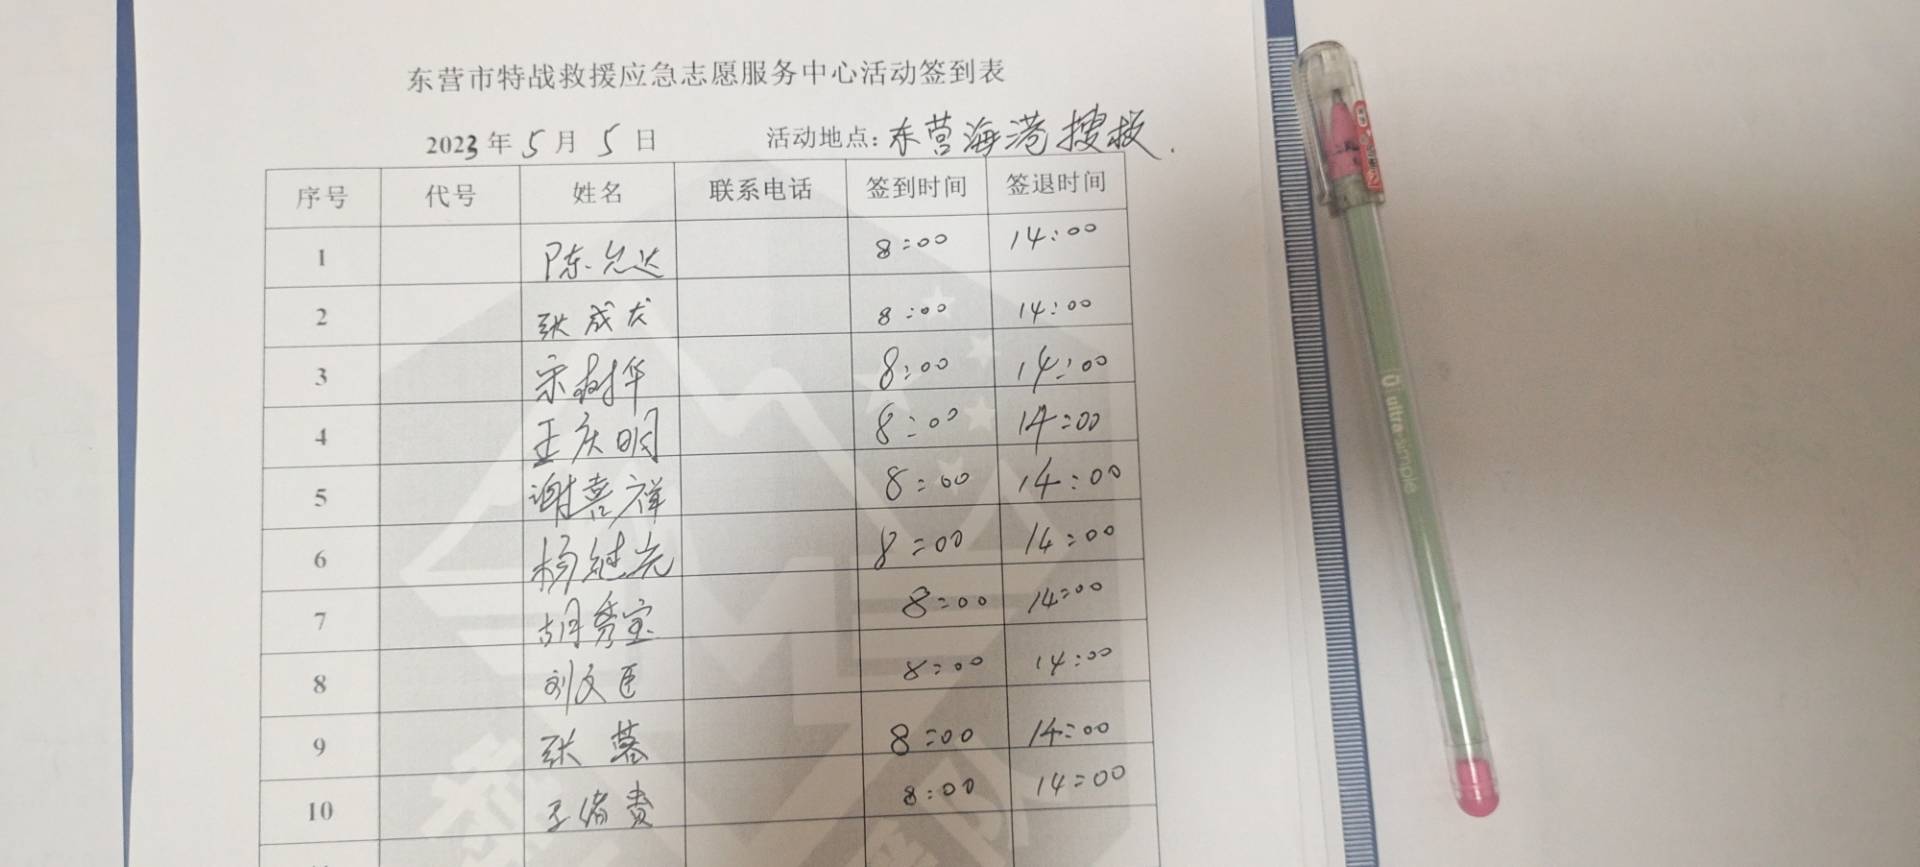 东营市特战救援应急志愿服务中心活动签到表
2023年5月5日 活动地点:东营海港搜救.
序号 代号 姓名 联系电话 签到时间 签退时间
1 陈允达 8:00 14:00
2 张成龙 8:00 14:00
3 宋树华 8:00 14:00
4 王庆明 8:00 14:00
5 谢喜祥 8:00 14:00
6 杨继光 8:00 14:00
7 胡秀宝 8:00 14:00
8 刘文臣 8:00 14:00
9 张蓉 8:00 14:00
10 王绪贵 8:00 14:00
ultra simple